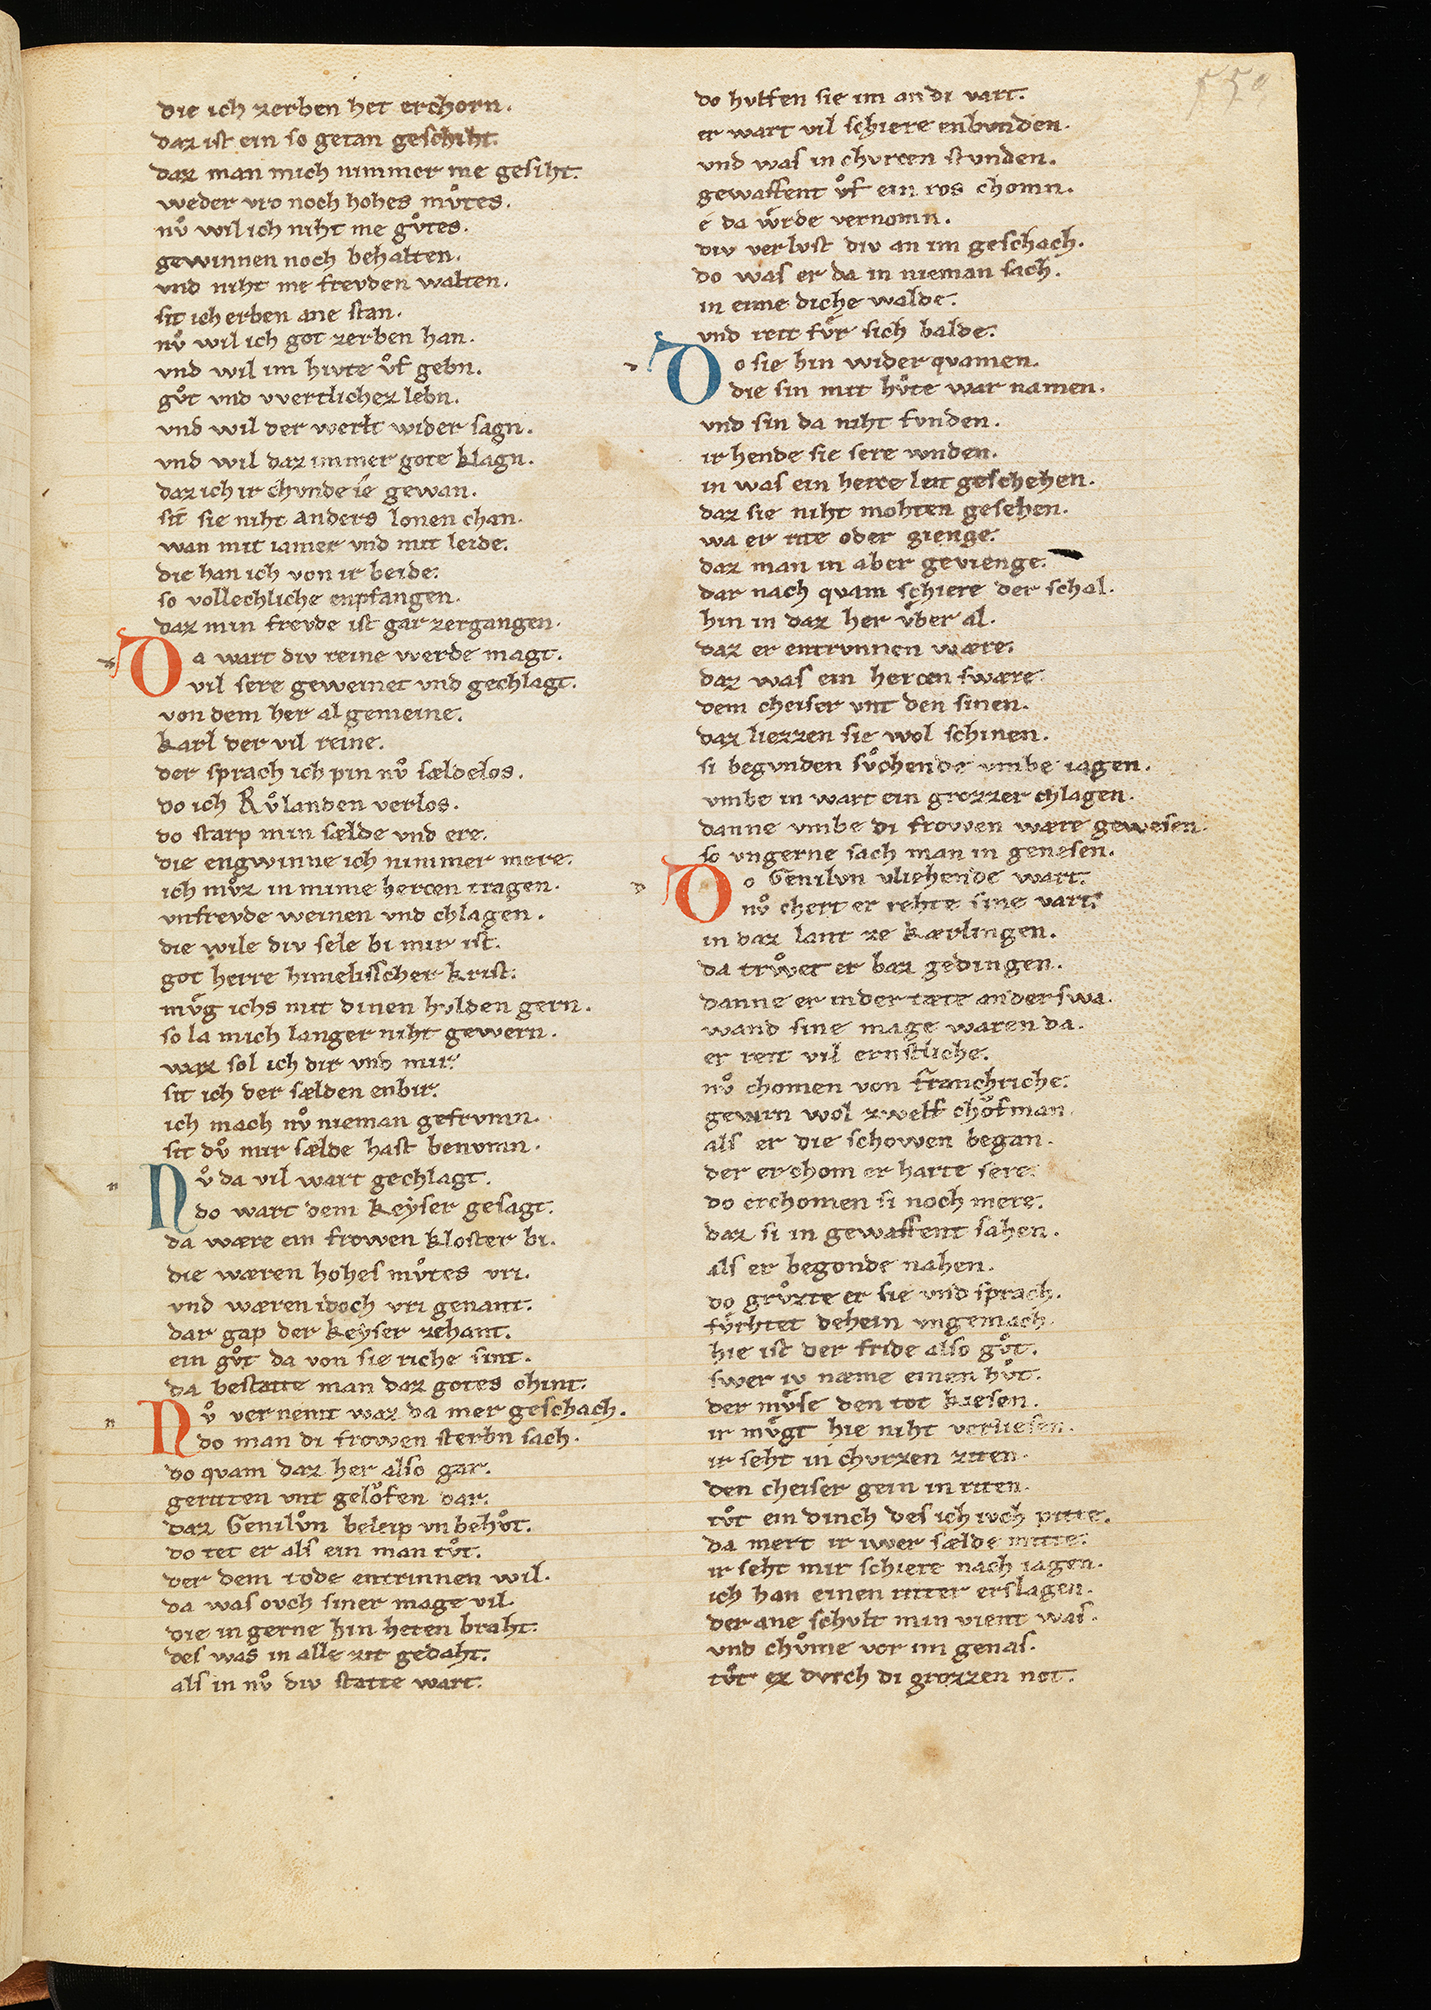 die ich zerben het erchorn.
daz ist ein so getan geschiht.
daz man mich nimmer me gesiht.
weder vro noch hohes mͦvtes.
nͦv wil ich niht me gͦvtes.
gewinnen noch behalten.
vnd niht me frevden walten.
sit ich erben ane stan.
nͦv wil ich got zerben han.
vnd wil im hivte ͦvf gebn.
gͦvt vnd vvertlichez lebn.
vnd wil der werlt wider sagn.
vnd wil daz immer gote klagn.
daz ich ir chvnde ie gewan.
sit sie niht anders lonen chan.
wan mit iamer vnd mit leide.
die han ich von ir beide.
so vollechliche enpfangen.
daz min frevde ist gar zergangen.
Da wart div reine werde magt.
vil sere geweinet vnd gechlagt.
von dem her al gemeine.
karl der vil reine.
der sprach ich pin nͦv sældelos.
do ich Rͦvlanden verlos.
do starp min sælde vnd ere.
die engwinne ich nimmer mere.
ich mͦvz in mime hercen tragen.
vnfrevde weinen vnd chlagen.
die wile div sele bi mir ist.
got herre himelisscher krist.
mͤvg ichs mit dinen hvlden gern.
so la mich langer niht gewern.
waz sol ich dir vnd mir.
sit ich der sælden enbir.
ich mach nͦv nieman gefrvmn.
sit dͦv mir sælde hast benvmn.
Nͦv da vil wart gechlagt.
do wart dem keyser gesagt.
da wære ein frowen kloster bi.
die wæren hohes mͦvtes vri.
vnd wæren idoch vri genant.
dar gap der keyser zehant.
ein gͦvt da von sie riche sint.
da bestatte man daz gotes chint.
Nͦv vernemt waz da mer geschach.
do man di frowen sterbn sach.
do quam daz her also gar.
geritten vnt gelͦofen dar.
daz Genilͦvn beleip vnbehͦvt.
do tet er als ein man tͦvt.
der dem tode entrinnen wil.
da was ovch siner mage vil.
die in gerne hin heten braht.
des was in alle zit gedaht.
als in nͦv div statte wart.
do hvlfen sie im an di vart.
er wart vil schiere enbvnden.
vnd was in chvrcen stunden.
gewaffent ͦvf ein ros chomn.
e da wͤrde vernomn.
div verlvst div an im geschach.
do was er da in nieman sach.
in eime diche walde.
vnd reit fͤvr sich balde.
Do sie hin wider quamen.
die sin mit hͦvte war namen.
vnd sin da niht fvnden.
ir hende sie sere wnden.
in was ein herce leit geschehen.
daz sie niht mohten gesehen.
wa er rite oder gienge.
daz man in aber gevienge.
dar nach quam schiere der schal.
hin in daz her ͤvber al.
daz er entrvnnen wære.
daz was ein hercen swære
dem cheiser vnt den sinen.
daz liezzen sie wol schinen.
si begvnden sͦvchende vmbe iagen.
vmbe in wart ein grozzer chlagen.
danne vmbe di frowen wære gewesen.
so vngerne sach man in genesen.
Do Genilvn vliehende wart.
nͦv chert er rehte sine vart.
in daz lant ze kærlingen.
da trͦwet er baz gedingen.
danne er inder tæte anderswa.
wand sine mage waren da.
er reit vil ernstliche.
nͦv chomen von franchriche.
gewin wol zwelf chͦofman.
als er die schowen began.
der erchom er harte sere.
do erchomen si noch mere.
daz si in gewaffent sahen.
als er begonde nahen.
do grͦvzte er sie vnd sprach.
fͤvrhtet dehein vngemach.
hie ist der fride also gͦvt.
swer iv næme einen hͦvt.
der mͤvse den tot kiesen.
ir mͤvgt hie niht verliesen.
ir seht in chvrzen ziten.
den cheiser gein in riten.
tͦvt ein dinch des ich ivch pitte.
da mert ir iwer sælde mitte.
ir seht mir schiere nach iagen.
ich han einen ritter erslagen.
der ane schvlt min vient was.
vnd chͦvme vor im genas.
tͦvt ez dvrch di grozzen not.